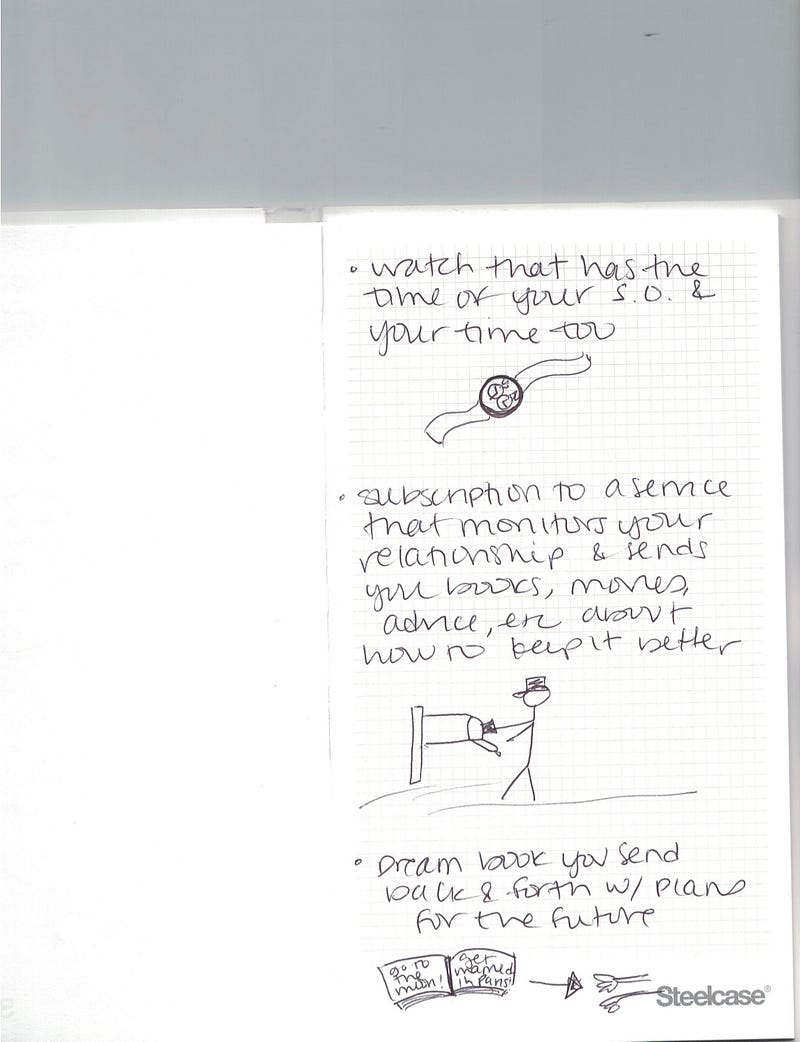 • watch that has the
time of your S.O. &
your time too
• subscription to a service
that monitors your
relationship & sends
you books, movies,
advice, etc about
how to keep it better
• Dream book you send
back & forth w/ plans
for the future
go to
the
moon!
get
married
in Paris!
Steelcase®